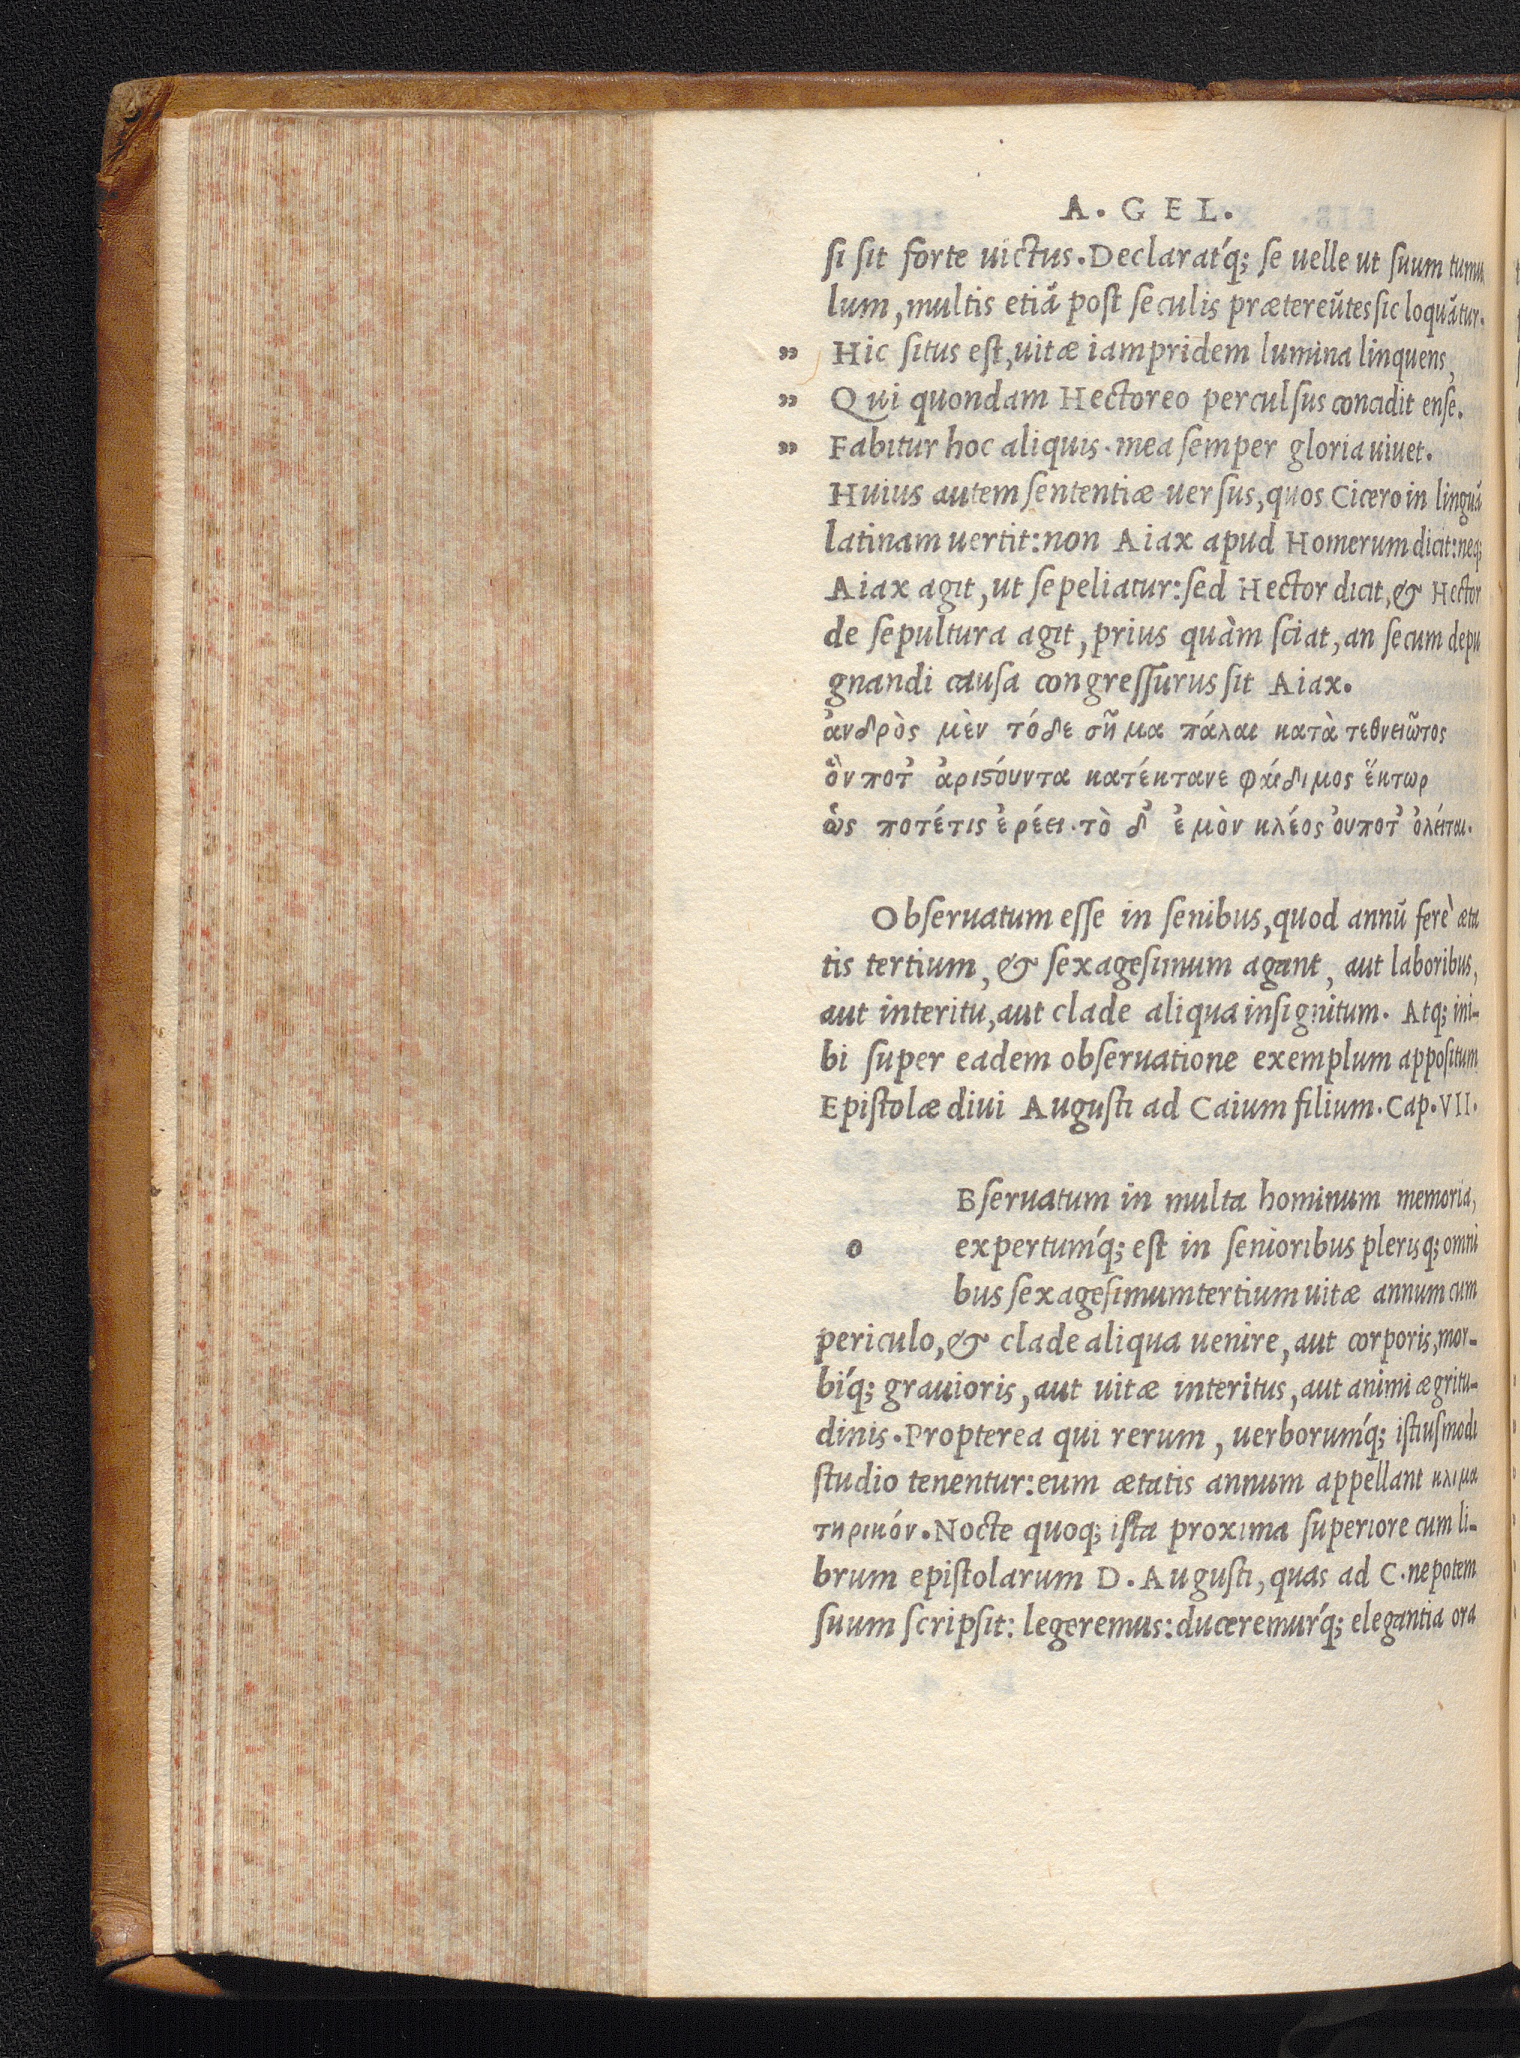 A. GEL.
si sit forte uictus. Declarat́q; se uelle ut suum tumu
lum, multis etiā post seculis prætereūtes sic loquātur.
” Hic situs est, uitæ iampridem lumina linquens,
” Qui quondam Hectoreo perculsus concidit ense.
” Fabitur hoc aliquis. mea semper gloria uiuet.
Huius autem sententiæ uersus, quos Cicero in linguā
latinam uertit: non Aiax apud Homerum dicit: neq;
Aiax agit, ut sepeliatur: sed Hector dicit, & Hector
de sepultura agit, prius quàm sciat, an secum depu
gnandi causa congressurus sit Aiax.
ἀνδρὸς μὲν τόδε σῆμα πάλαι κατὰ τεθνειῶτος
ὃν ποτ̓ ἀριϛόυντα κατέκτανε φάιδιμος ἕκτωρ
ὥς ποτέτις ἐρέει. τὸ δ̓ ἐμὸν κλέος ὀυποτ̓ ὀλέιται.
Obseruatum esse in senibus, quod annū ferè æta
tis tertium, & sexagesimum agant, aut laboribus,
aut interitu, aut clade aliqua insignitum. Atq; ini-
bi super eadem obseruatione exemplum appositum
Epistolæ diui Augusti ad Caium filium. Cap. VII.
Bseruatum in multa hominum memoria,
o expertuḿq; est in senioribus plerisq; omni
bus sexagesimumtertium uitæ annum cum
periculo, & clade aliqua uenire, aut corporis, mor-
bíq; grauioris, aut uitæ interitus, aut animi ægritu-
dinis. Propterea qui rerum, uerboruḿq; istiusmodi
studio tenentur: eum ætatis annum appellant κλιμα
τηρικόν. Nocte quoq; ista proxima superiore cum li-
brum epistolarum D. Augusti, quas ad C. nepotem
suum scripsit: legeremus: duceremuŕq; elegantia ora